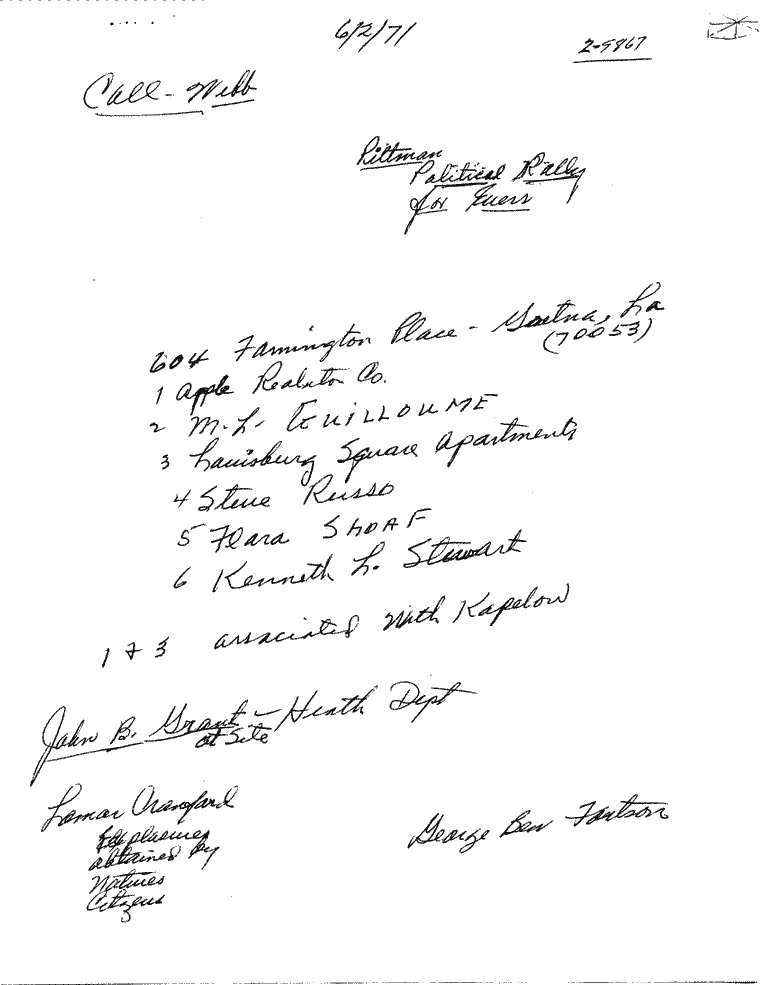 6/2/71
2-9867
Call - Webb
Pittman
Political Rally
for
604 Farmington Place - Gretna, La
(70053)
1 Apple Co.
2 M. L. GUILLOUME
3 Louisburg Square Apartments
4 Steve Russo
5 Flara SHOAF
6 Kenneth L. Stewart
1 & 3 associated with Kapelow
John B. Grant - Heath Dept
at Site
Lamar
obtained by
Citizens
George Ben